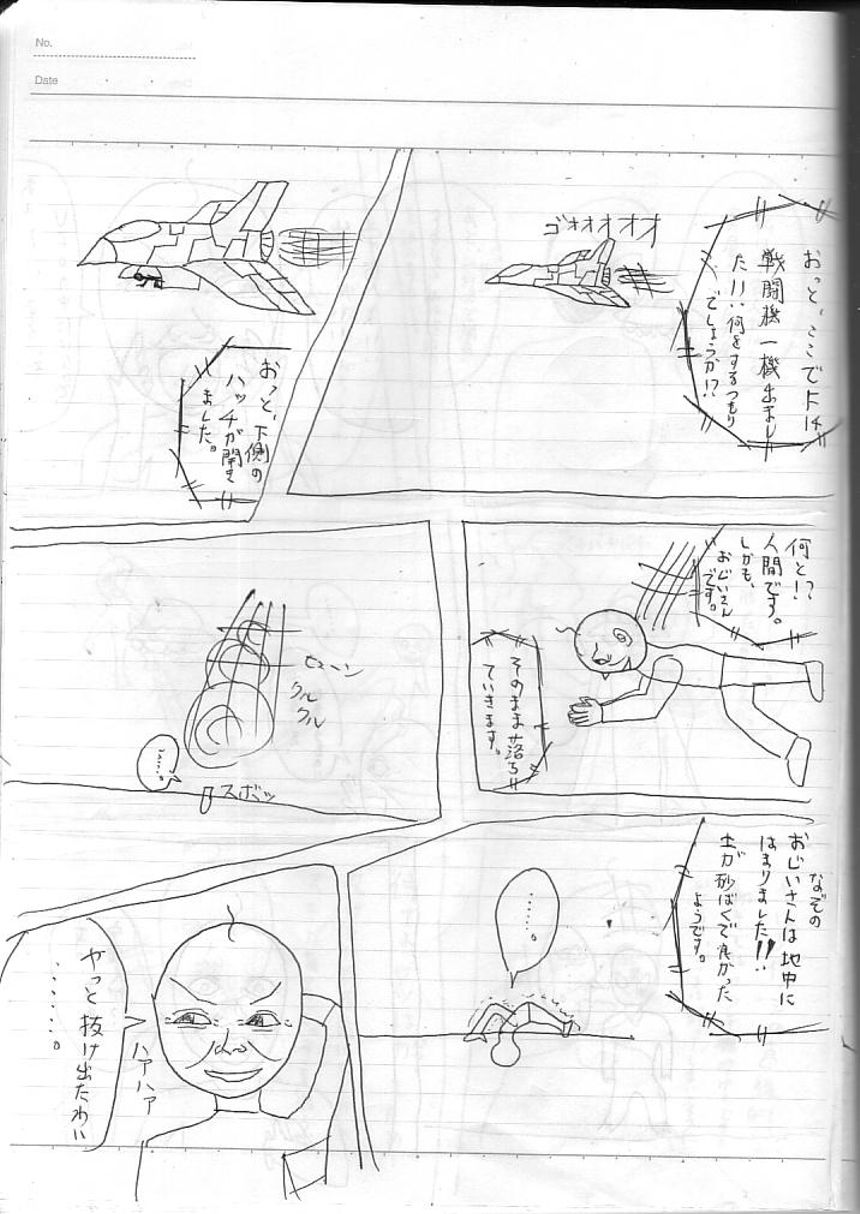 No.
Date
おっと、ここで下は
戦闘機一機出まし
た!!!何をするつもり
でしょうか!?
ゴオオオオオ
おっと、下側の
ハッチが開き
ました。
何と!?
人間です。
しかも、
おじいさん
です。
そのまま落ち
ていきます。
ヒューン
クル
クル
…。
スボッ
なぞの
おじいさんは地中に
はまりました!!
土が砂ばくで良かった
ようです。
……。
やっと抜け出たわい
……。
ハアハア